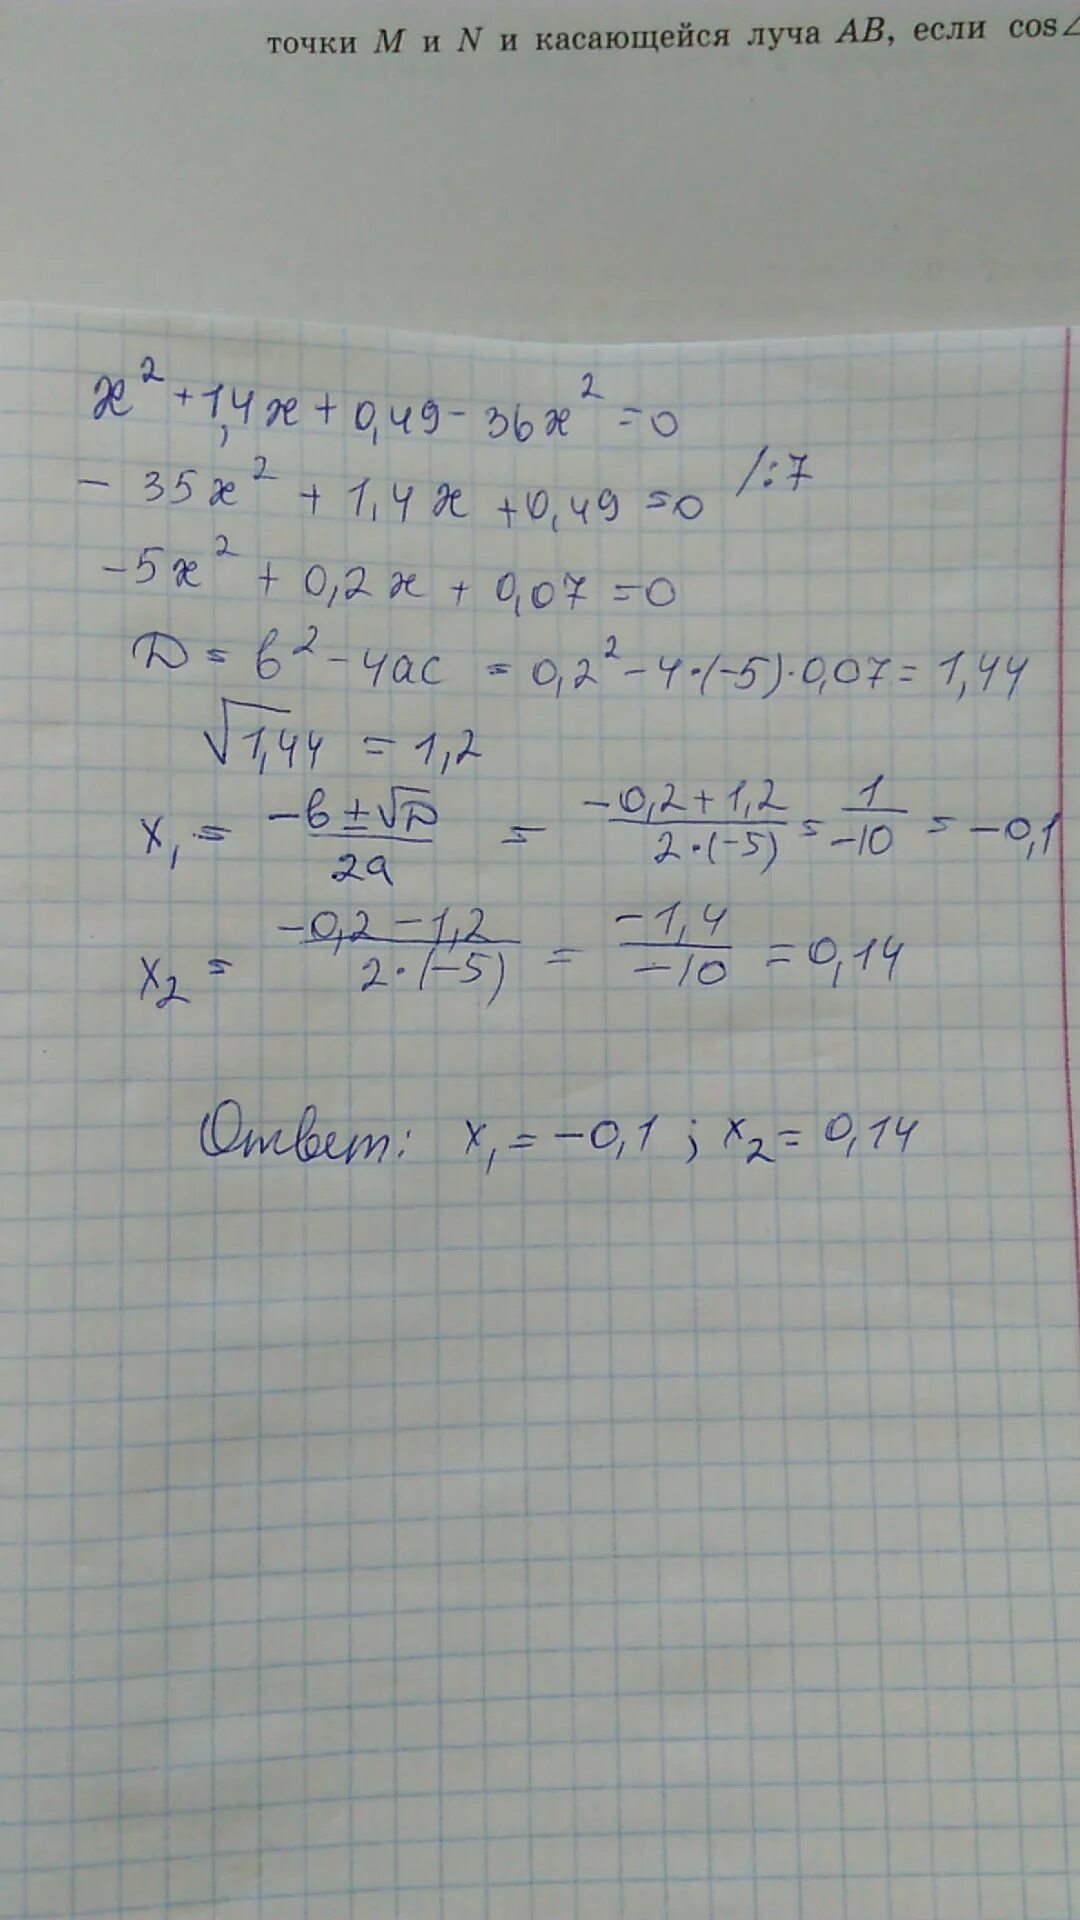 точки M и N и касающейся луча AB, если cos∠
x² + 1,4x + 0,49 - 36x² = 0
- 35x² + 1,4x + 0,49 = 0 /:7
-5x² + 0,2x + 0,07 = 0
D = b² - 4ac = 0,2² - 4·(-5)·0,07 = 1,44
√1,44 = 1,2
x₁ = (-b ± √D)/(2a) = (-0,2 + 1,2)/(2·(-5)) = 1/(-10) = -0,1
x₂ = (-0,2 - 1,2)/(2·(-5)) = (-1,4)/(-10) = 0,14
Ответ: x₁ = -0,1 ; x₂ = 0,14